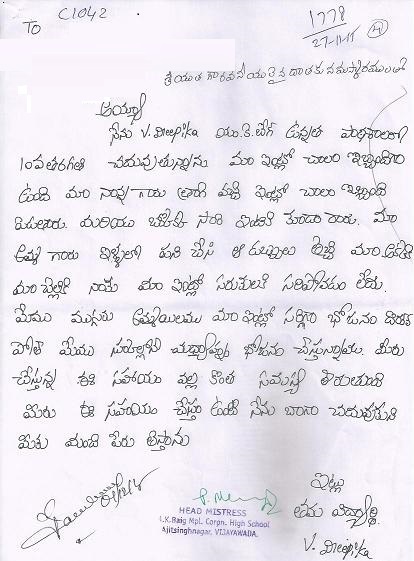 TO C1042
1778
27-11-15
శ్రీయుత గౌరవనీయులైన దాతకు నమస్కారములతో
అయ్యా
నేను V. Deepika యం.కె.బేగ్ ఉన్నత పాఠశాలలో
10వతరగతి చదువుతున్నాను మా ఇంట్లో చాలా ఇబ్బందిగా
ఉంది మా నాన్న గారు త్రాగి వచ్చి ఇంట్లో చాలా ఇబ్బంది
మరియు సారి ఇంటికి రారు. మా
అమ్మ గారు ఇళ్ళలో పని చేసి ఆ డబ్బులు తెచ్చి మా
మా చెల్లికి నాకు మా ఇంట్లో సరుకులకి సరిపోవటం లేదు.
మేము ముగ్గురు అమ్మాయిలము మా ఇంట్లో సరిగ్గా భోజనం
మేము స్కూల్లో మధ్యాహ్న భోజనం చేస్తున్నాము. మీరు
చేస్తున్న ఈ సహాయం వల్ల కొంత సమస్య తీరుతుంది
మీరు ఈ సహాయం చేస్తూ ఉంటే నేను బాగా చదువుకుని
మీకు మంచి పేరు తెస్తాను
ఇట్లు
తమ విద్యార్థి
V. Deepika
HEAD MISTRESS
.K.Baig Mpl. Corpn. High School
Ajitsinghnagar, VIJAYAWADA.